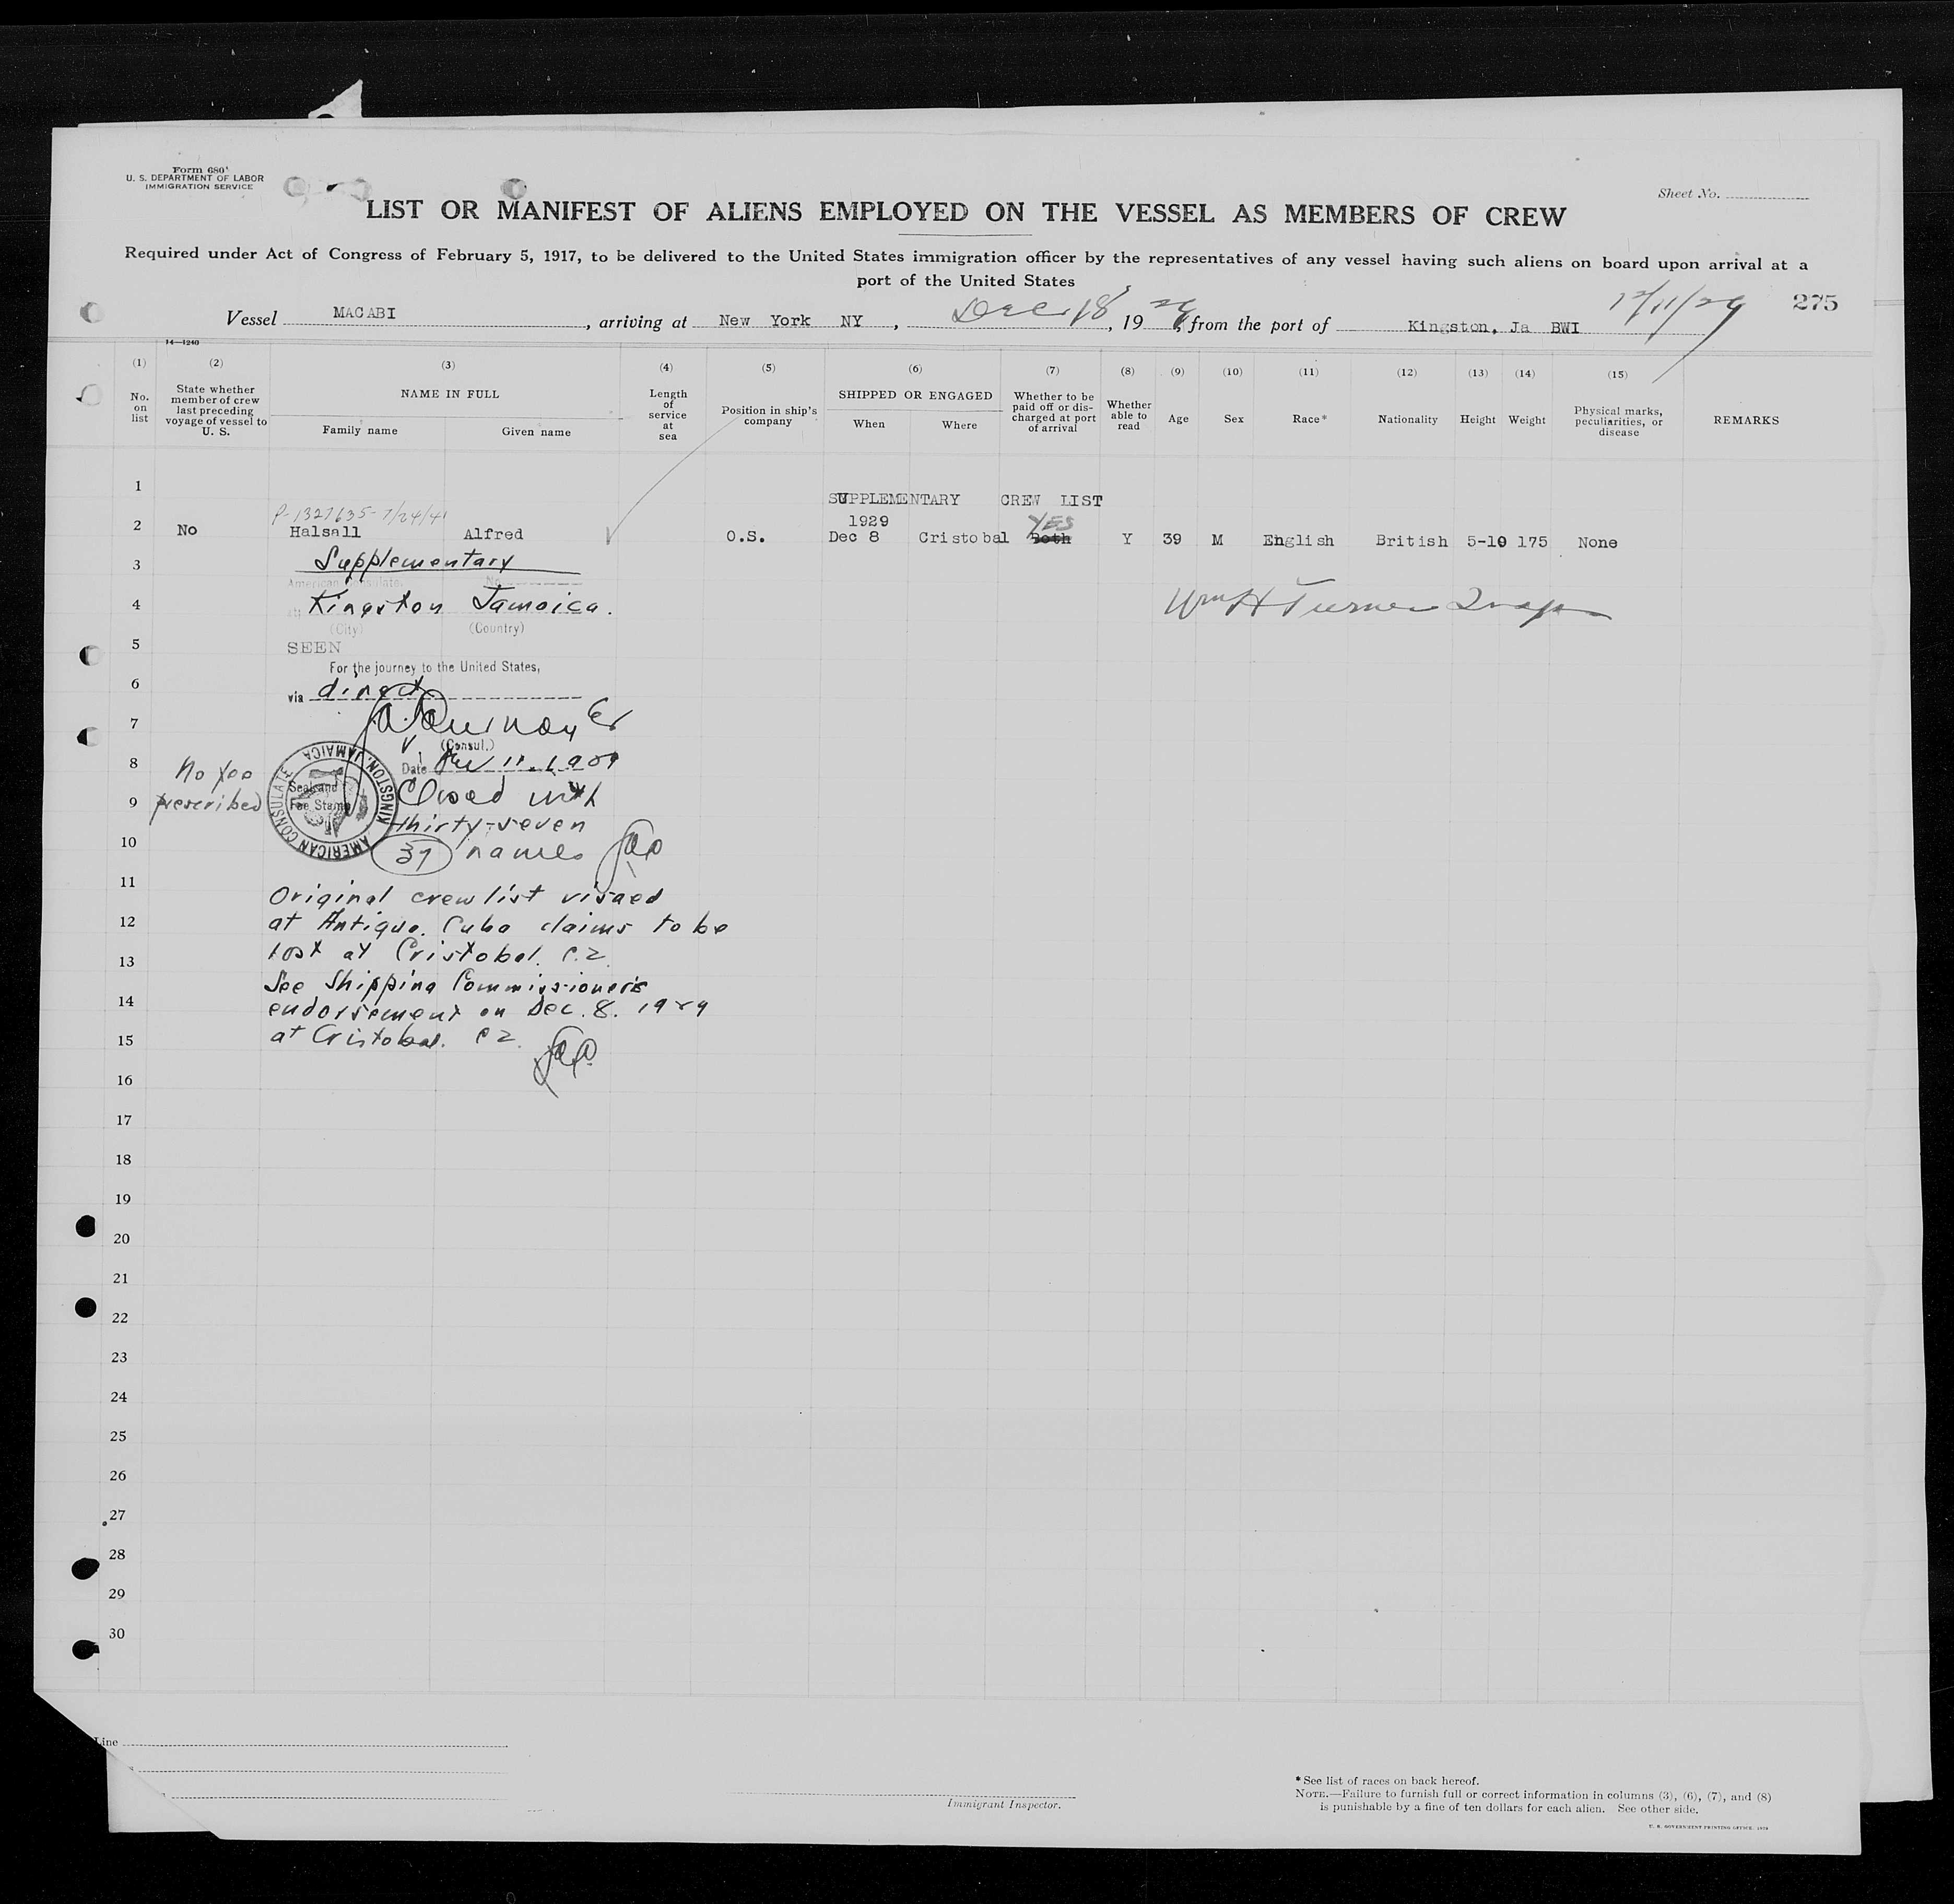 Form 680
U. S. DEPARTMENT OF LABOR
IMMIGRATION SERVICE
Sheet No.
LIST OR MANIFEST OF ALIENS EMPLOYED ON THE VESSEL AS MEMBERS OF CREW
Required under Act of Congress of February 5, 1917, to be delivered to the United States immigration officer by the representatives of any vessel having such aliens on board upon arrival at a
port of the United States
12/11/29 275
Vessel MACABI, arriving at New York NY, Dec 18, 1929, from the port of Kingston, Ja BWI
14—1240
(1) (2) (3) (4) (5) (6) (7) (8) (9) (10) (11) (12) (13) (14) (15)
No. on list
State whether member of crew last preceding voyage of vessel to U. S.
NAME IN FULL
Family name Given name
Length of service at sea
Position in ship's company
SHIPPED OR ENGAGED
When Where
Whether to be paid off or discharged at port of arrival
Whether able to read
Age
Sex
Race*
Nationality
Height
Weight
Physical marks, peculiarities, or disease
REMARKS
1
SUPPLEMENTARY CREW LIST
P-1327635-7/24/41
1929 YES
2 No Halsall Alfred O.S. Dec 8 Cristobal Both Y 39 M English British 5-10 175 None
3 Supplementary
American Consulate, No.
4 Kingston Jamaica.
(City) (Country)
Wm H Turner
5 SEEN
For the journey to the United States,
6 via direct
7
(Consul.)
8 Date 11, 1929
No fee
prescribed
AMERICAN CONSULATE KINGSTON, JAMAICA
Seal and
Fee Stamp
9 Closed with
thirty-seven
10 37 names
11 Original crew list visaed
12 at Antigua. Cuba claims to be
13 lost at Cristobal. C.Z.
See Shipping Commissioner's
14 endorsement on Dec. 8. 1929
15 at Cristobal. CZ.
16
17
18
19
20
21
22
23
24
25
26
27
28
29
30
Line
Immigrant Inspector.
* See list of races on back hereof.
NOTE.—Failure to furnish full or correct information in columns (3), (6), (7), and (8)
is punishable by a fine of ten dollars for each alien. See other side.
U. S. GOVERNMENT PRINTING OFFICE: 1929